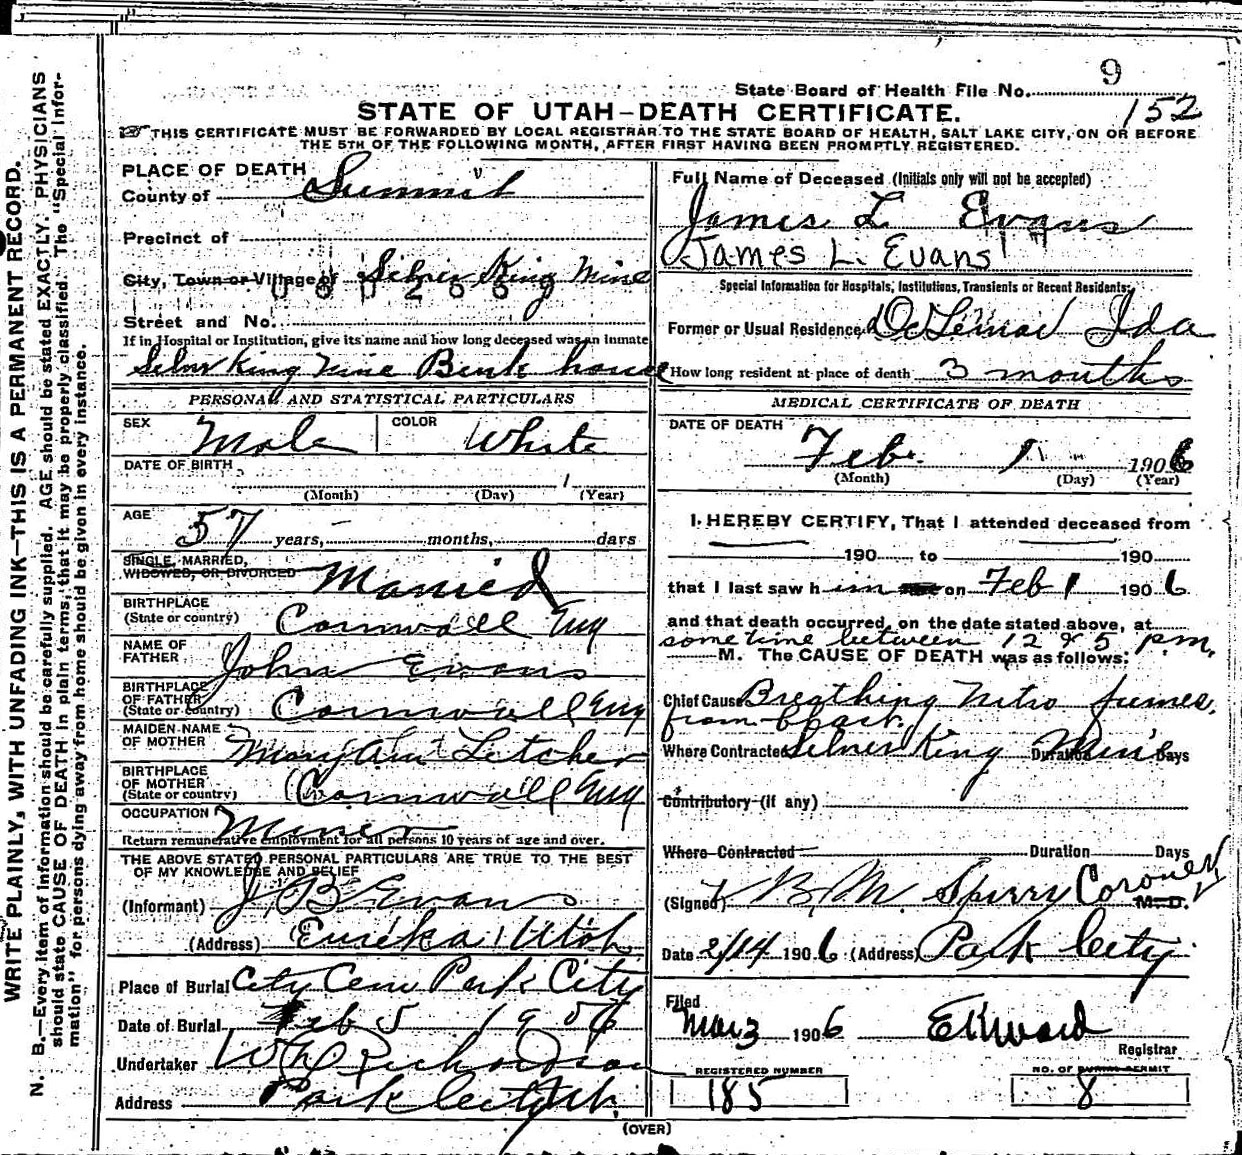 9
State Board of Health File No.
152
STATE OF UTAH—DEATH CERTIFICATE.
THIS CERTIFICATE MUST BE FORWARDED BY LOCAL REGISTRAR TO THE STATE BOARD OF HEALTH, SALT LAKE CITY, ON OR BEFORE
THE 5TH OF THE FOLLOWING MONTH, AFTER FIRST HAVING BEEN PROMPTLY REGISTERED.
WRITE PLAINLY, WITH UNFADING INK—THIS IS A PERMANENT RECORD.
N. B.—Every item of information should be carefully supplied. AGE should be stated EXACTLY. PHYSICIANS
should state CAUSE OF DEATH in plain terms, that it may be properly classified. The "Special Infor-
mation" for persons dying away from home should be given in every instance.
PLACE OF DEATH
County of Summit
Precinct of
City, Town or Village of Silver King Mine
Street and No.
If in Hospital or Institution, give its name and how long deceased was an inmate
Silver King Mine Bunk house
PERSONAL AND STATISTICAL PARTICULARS
SEX Male COLOR White
DATE OF BIRTH
(Month) (Day) (Year)
AGE 57 years, months, days
SINGLE, MARRIED,
WIDOWED, OR DIVORCED Married
BIRTHPLACE
(State or country) Cornwall Eng
NAME OF
FATHER John Evans
BIRTHPLACE
OF FATHER
(State or country) Cornwall Eng
MAIDEN NAME
OF MOTHER Mary Ann Letcher
BIRTHPLACE
OF MOTHER
(State or country) Cornwall Eng
OCCUPATION Miner
Return remunerative employment for all persons 10 years of age and over.
THE ABOVE STATED PERSONAL PARTICULARS ARE TRUE TO THE BEST
OF MY KNOWLEDGE AND BELIEF
(Informant) J B Evans
(Address) Eureka Utah
Place of Burial City Cem Park City
Date of Burial Feb 5 1906
Undertaker Richardson
Address Park City Ut.
Full Name of Deceased (Initials only will not be accepted)
James L Evans
James L. Evans
Special Information for Hospitals, Institutions, Transients or Recent Residents:
Former or Usual Residence DeLemar Ida
How long resident at place of death 3 months
MEDICAL CERTIFICATE OF DEATH
DATE OF DEATH
Feb. 1 1906
(Month) (Day) (Year)
I HEREBY CERTIFY, That I attended deceased from
190 to 190
that I last saw him on Feb 1 1906
and that death occurred, on the date stated above, at
some time between 12 & 5 p.m.
M. The CAUSE OF DEATH was as follows:
Chief Cause Breathing Nitro fumes,
from blast.
Where Contracted Silver King Duration Days
Contributory (if any)
Where Contracted Duration Days
(Signed) B. M. Sperry Coroner M. D.
Date 2/14 1906 (Address) Park City
Filed
Mar 3 1906 E K Ward
Registrar
REGISTERED NUMBER
185
NO. OF BURIAL PERMIT
8
(OVER)